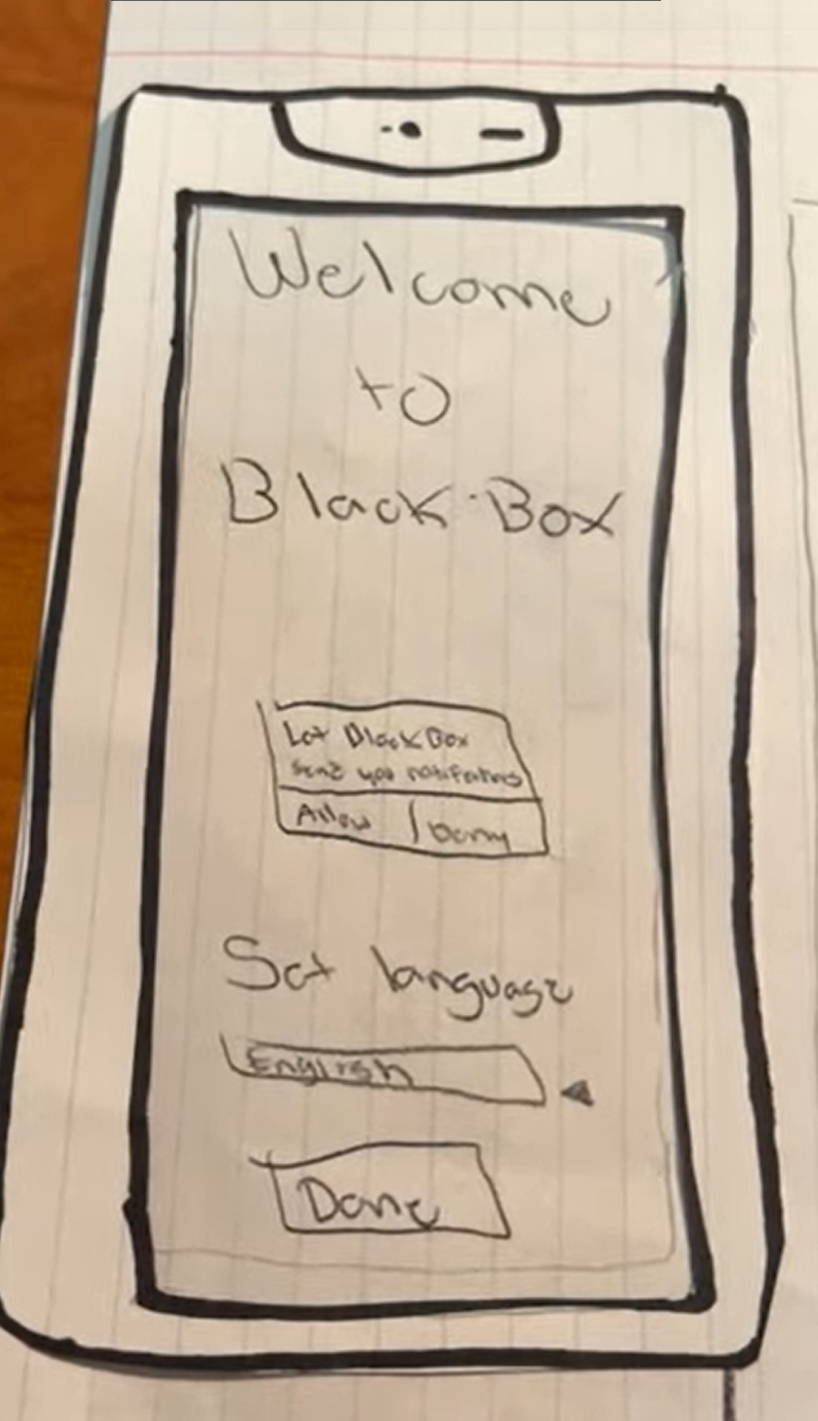 Welcome
to
Black Box
Let BlackBox
send you notifications
Allow | Deny
Set language
English
Done